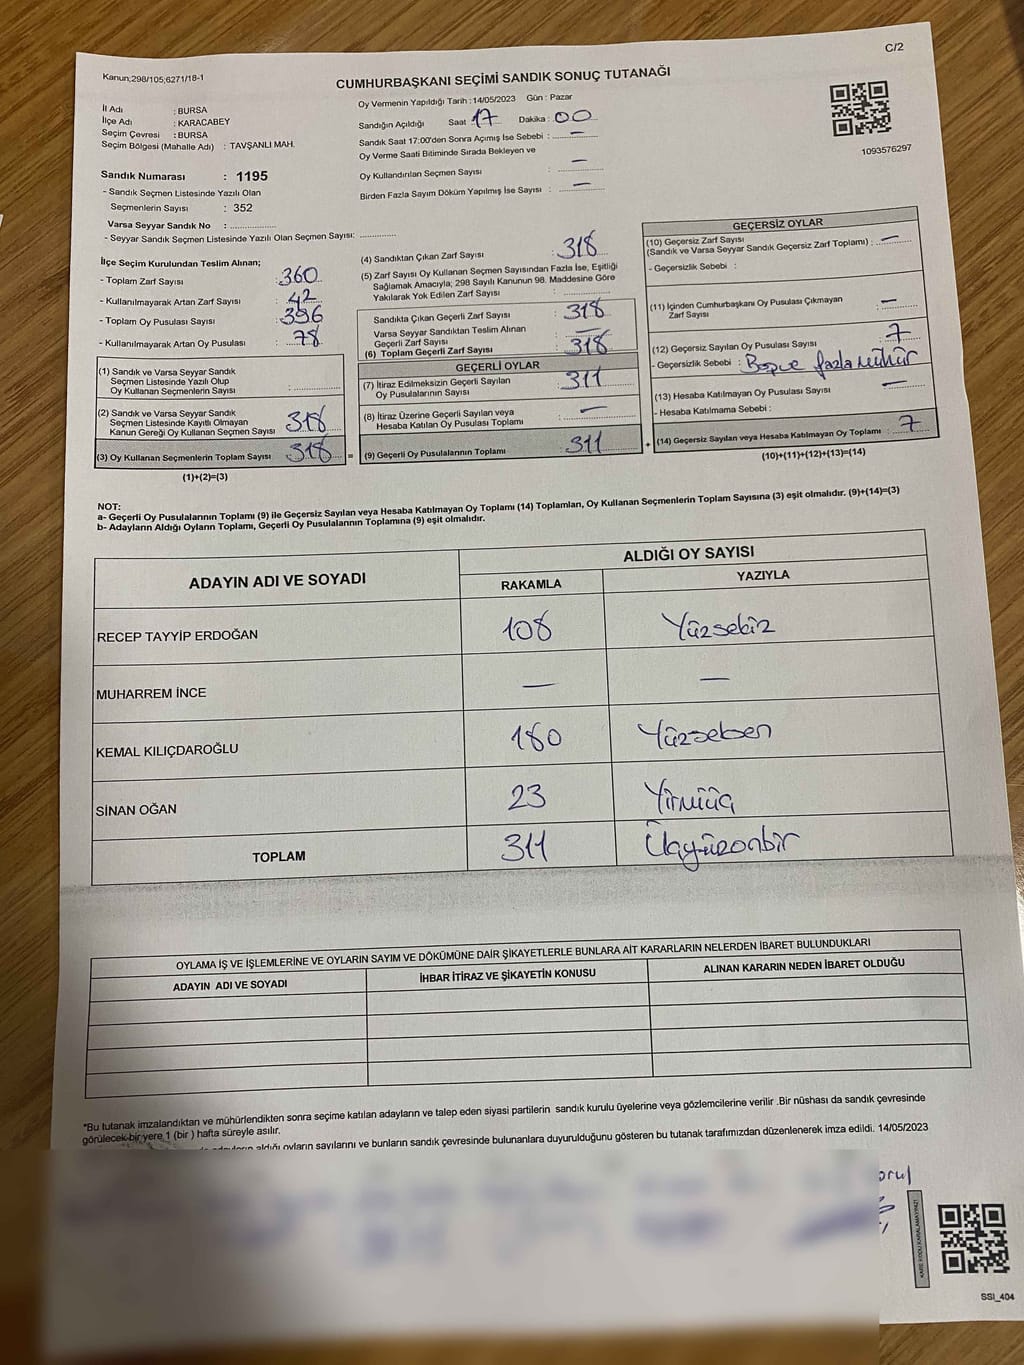 C/2
Kanun;298/105;6271/18-1
CUMHURBAŞKANI SEÇİMİ SANDIK SONUÇ TUTANAĞI
İl Adı : BURSA
İlçe Adı : KARACABEY
Seçim Çevresi : BURSA
Seçim Bölgesi (Mahalle Adı) : TAVŞANLI MAH.
Sandık Numarası : 1195
- Sandık Seçmen Listesinde Yazılı Olan
Seçmenlerin Sayısı : 352
Varsa Seyyar Sandık No : ....................
- Seyyar Sandık Seçmen Listesinde Yazılı Olan Seçmen Sayısı: ..............
Oy Vermenin Yapıldığı Tarih : 14/05/2023 Gün : Pazar
Sandığın Açıldığı Saat 17 Dakika : 00
Sandık Saat 17:00'den Sonra Açımış İse Sebebi : —
Oy Verme Saati Bitiminde Sırada Bekleyen ve
Oy Kullandırılan Seçmen Sayısı : —
Birden Fazla Sayım Döküm Yapılmış İse Sayısı : —
1093576297
İlçe Seçim Kurulundan Teslim Alınan;
- Toplam Zarf Sayısı : 360
- Kullanılmayarak Artan Zarf Sayısı : 42
- Toplam Oy Pusulası Sayısı : 396
- Kullanılmayarak Artan Oy Pusulası : 78
(1) Sandık ve Varsa Seyyar Sandık
Seçmen Listesinde Yazılı Olup
Oy Kullanan Seçmenlerin Sayısı : ..............
(2) Sandık ve Varsa Seyyar Sandık
Seçmen Listesinde Kayıtlı Olmayan
Kanun Gereği Oy Kullanan Seçmen Sayısı : 318
(3) Oy Kullanan Seçmenlerin Toplam Sayısı : 318
(1)+(2)=(3)
(4) Sandıktan Çıkan Zarf Sayısı : 318
(5) Zarf Sayısı Oy Kullanan Seçmen Sayısından Fazla İse, Eşitliği
Sağlamak Amacıyla; 298 Sayılı Kanunun 98. Maddesine Göre
Yakılarak Yok Edilen Zarf Sayısı : ..............
Sandıkta Çıkan Geçerli Zarf Sayısı : 318
Varsa Seyyar Sandıktan Teslim Alınan
Geçerli Zarf Sayısı : —
(6) Toplam Geçerli Zarf Sayısı : 318
GEÇERLİ OYLAR
(7) İtiraz Edilmeksizin Geçerli Sayılan
Oy Pusulalarının Sayısı : 311
(8) İtiraz Üzerine Geçerli Sayılan veya
Hesaba Katılan Oy Pusulası Toplamı : —
= (9) Geçerli Oy Pusulalarının Toplamı : 311
GEÇERSİZ OYLAR
(10) Geçersiz Zarf Sayısı
(Sandık ve Varsa Seyyar Sandık Geçersiz Zarf Toplamı) : —
- Geçersizlik Sebebi :
(11) İçinden Cumhurbaşkanı Oy Pusulası Çıkmayan
Zarf Sayısı : —
(12) Geçersiz Sayılan Oy Pusulası Sayısı : 7
- Geçersizlik Sebebi : fazla mühür
(13) Hesaba Katılmayan Oy Pusulası Sayısı : —
- Hesaba Katılmama Sebebi :
+ (14) Geçersiz Sayılan veya Hesaba Katılmayan Oy Toplamı : 7
(10)+(11)+(12)+(13)=(14)
NOT:
a- Geçerli Oy Pusulalarının Toplamı (9) ile Geçersiz Sayılan veya Hesaba Katılmayan Oy Toplamı (14) Toplamları, Oy Kullanan Seçmenlerin Toplam Sayısına (3) eşit olmalıdır. (9)+(14)=(3)
b- Adayların Aldığı Oyların Toplamı, Geçerli Oy Pusulalarının Toplamına (9) eşit olmalıdır.
ADAYIN ADI VE SOYADI
ALDIĞI OY SAYISI
RAKAMLA YAZIYLA
RECEP TAYYİP ERDOĞAN 108 Yüzsekiz
MUHARREM İNCE — —
KEMAL KILIÇDAROĞLU 180 Yüzseksen
SİNAN OĞAN 23 Yirmiüç
TOPLAM 311 Üçyüzonbir
OYLAMA İŞ VE İŞLEMLERİNE VE OYLARIN SAYIM VE DÖKÜMÜNE DAİR ŞİKAYETLERLE BUNLARA AİT KARARLARIN NELERDEN İBARET BULUNDUKLARI
ADAYIN ADI VE SOYADI İHBAR İTİRAZ VE ŞİKAYETİN KONUSU ALINAN KARARIN NEDEN İBARET OLDUĞU
*Bu tutanak imzalandıktan ve mühürlendikten sonra seçime katılan adayların ve talep eden siyasi partilerin sandık kurulu üyelerine veya gözlemcilerine verilir .Bir nüshası da sandık çevresinde
görülecek bir yere 1 (bir ) hafta süreyle asılır.
aldığı oyların sayılarını ve bunların sandık çevresinde bulunanlara duyurulduğunu gösteren bu tutanak tarafımızdan düzenlenerek imza edildi. 14/05/2023
KARE KODU KARALAMAYINIZ!
SSI_404